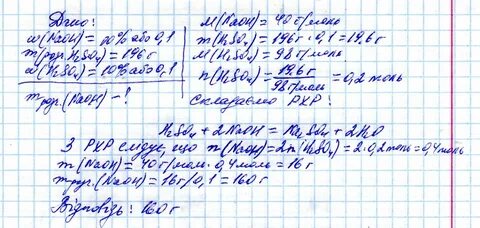 Дано:
w(NaOH) = 10% або 0,1
m роз.(H₂SO₄) = 196 г
w(H₂SO₄) = 10% або 0,1
m роз.(NaOH) - ?
M(NaOH) = 40 г/моль
m(H₂SO₄) = 196 г · 0,1 = 19,6 г
M(H₂SO₄) = 98 г/моль
n(H₂SO₄) = 19,6 г / 98 г/моль = 0,2 моль
Складаємо РХР:
H₂SO₄ + 2NaOH = Na₂SO₄ + 2H₂O
З РХР слідує, що n(NaOH) = 2n(H₂SO₄) = 2·0,2 моль = 0,4 моль
m(NaOH) = 40 г/моль · 0,4 моль = 16 г
m роз.(NaOH) = 16 г / 0,1 = 160 г
Відповідь: 160 г